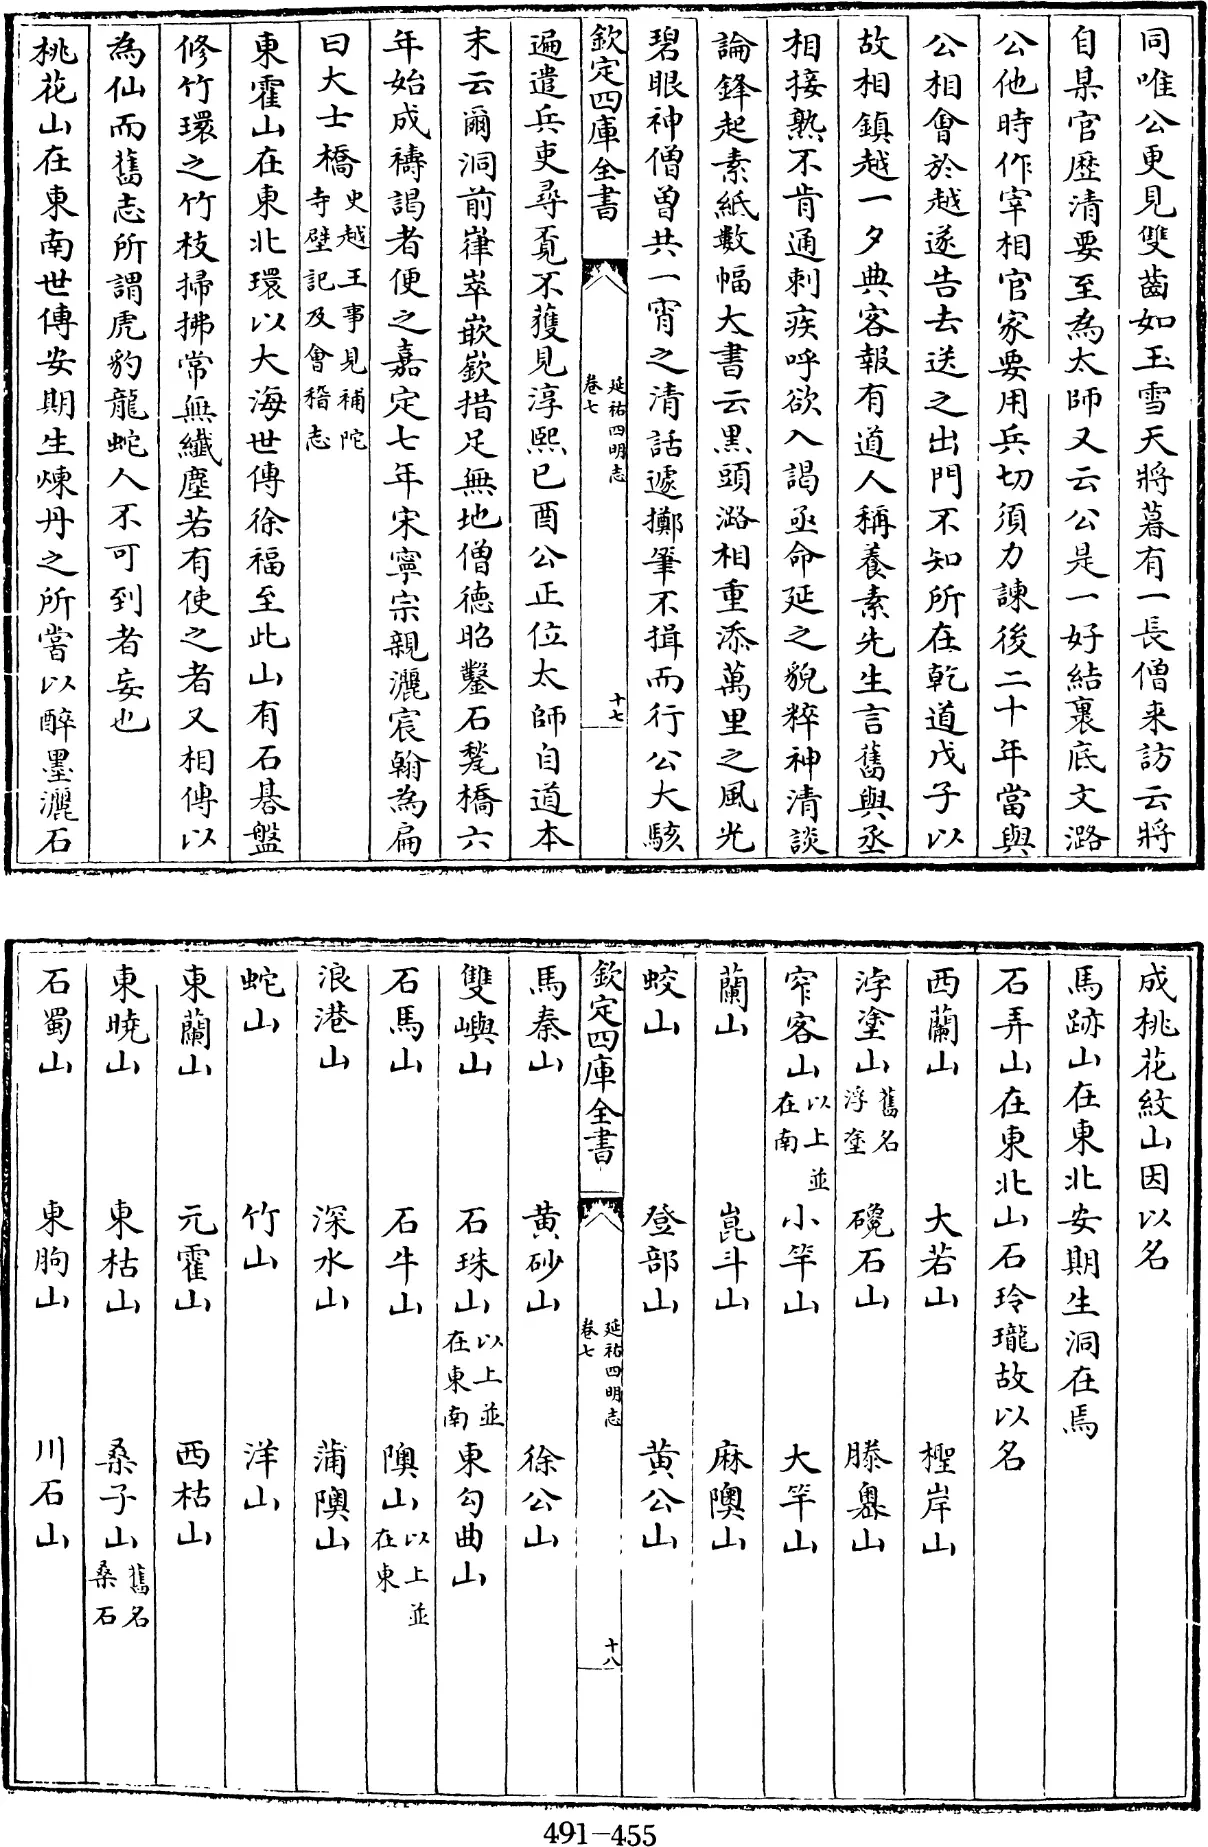 同唯公更見雙齒如玉雪天將暮有一長僧来訪云將
自某官歷清要至為太師又云公是一好結裏底文潞
公他時作宰相官家要用兵切須力諫後二十年當與
公相會於越遂告去送之出門不知所在乾道戊子以
故相鎮越一夕典客報有道人稱養素先生言舊與丞
相接熟不肯通刺疾呼欲入謁亟命延之貌粹神清談
論鋒起素紙數幅大書云黒頭潞相重添萬里之風光
碧眼神僧曽共一宵之清話遽擲筆不揖而行公大駭
欽定四庫全書
延祐四明志
卷七
十七
遍遣兵吏尋覔不獲見淳熙已酉公正位太師自道本
末云爾洞前嵂崒嵌嶔措足無地僧徳昭鑿石甃橋六
年始成禱謁者便之嘉定七年宋寧宗親灑宸翰為扁
曰大士橋史越王事見補陀寺壁記及會稽志
東霍山在東北環以大海世傳徐福至此山有石棊盤
修竹環之竹枝掃拂常無纎塵若有使之者又相傳以
為仙而舊志所謂虎豹龍蛇人不可到者妄也
桃花山在東南世傳安期生煉丹之所嘗以醉墨灑石
成桃花紋山因以名
馬跡山在東北安期生洞在焉
石弄山在東北山石玲瓏故以名
西蘭山 大若山 檉岸山
浮塗山舊名浮塗 磪石山 滕嶴山
窄客山以上並在南 小竿山 大竿山
蘭山 崑斗山 麻隩山
蛟山 登部山 黄公山
欽定四庫全書
延祐四明志
卷七
十八
馬秦山 黄砂山 徐公山
雙嶼山 石珠山以上並在東南 東勾曲山
石馬山 石牛山 隩山以上並在東
浪港山 深水山 蒲隩山
蛇山 竹山 洋山
東蘭山 元霍山 西枯山
東曉山 東枯山 桑子山舊名桑石
石蜀山 東朐山 川石山
491-455